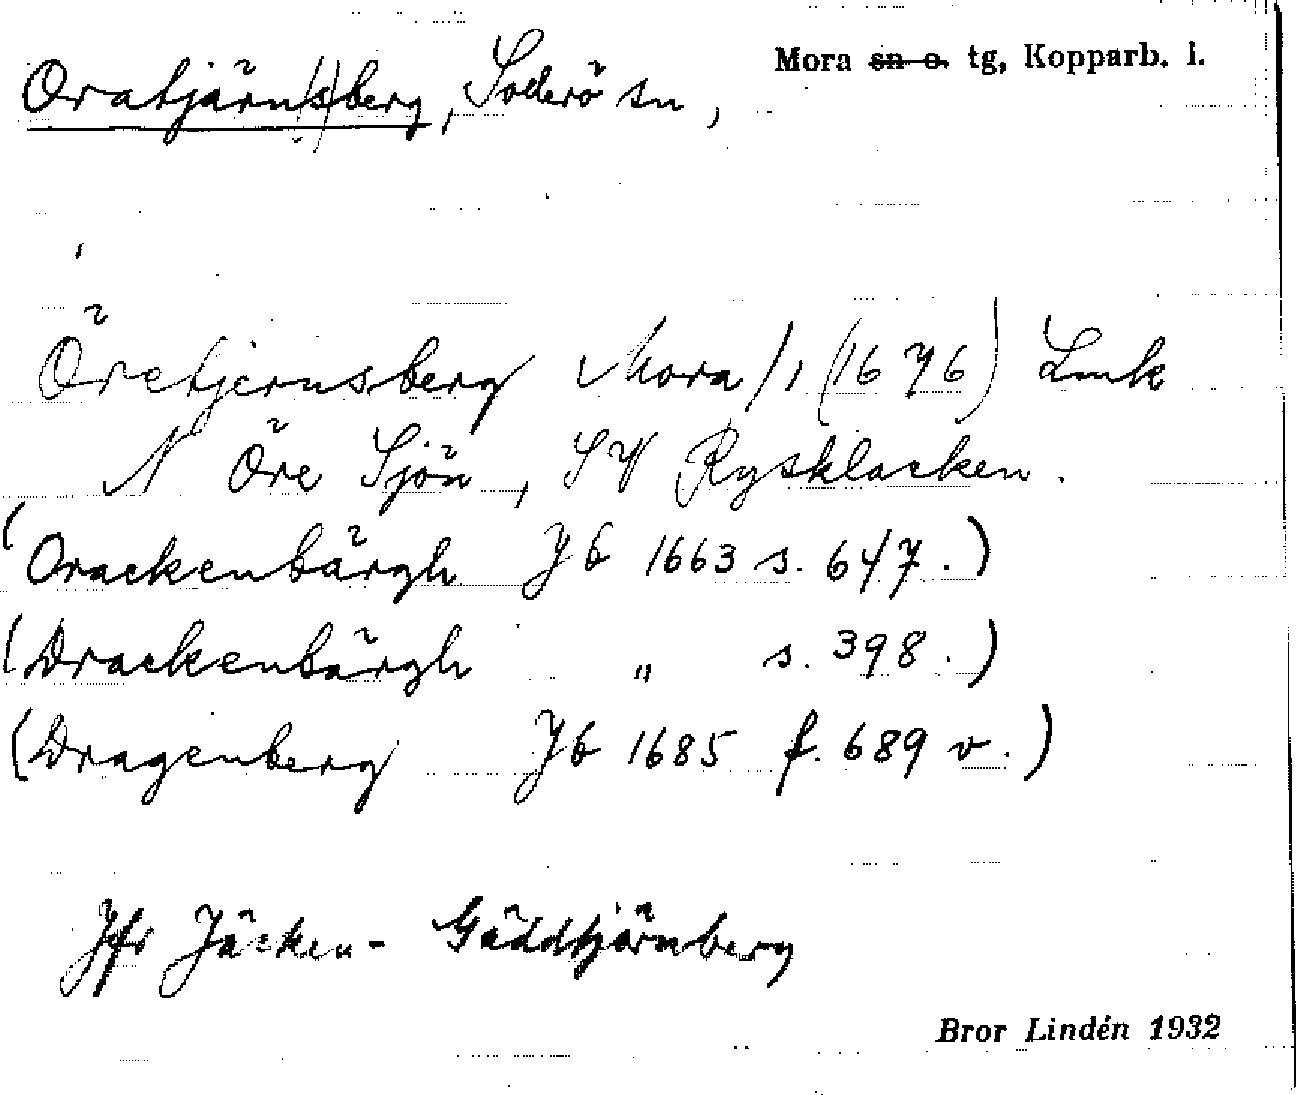 Mora ~~sn o.~~ tg, Kopparb. l.
Oratjärn(s)berg, Soderö sn,
Öretjernsberg Mora / 1 (1676) Lmk
N Öre Sjön, SV Rysklacken.
(Orackenbärgh Jb 1663 s. 647.)
(Drackenbärgh " s. 398.)
(Dragenberg Jb 1685 f. 689 v.)
Jfr Jäcken- Gäddtjärnberg
Bror Lindén 1932